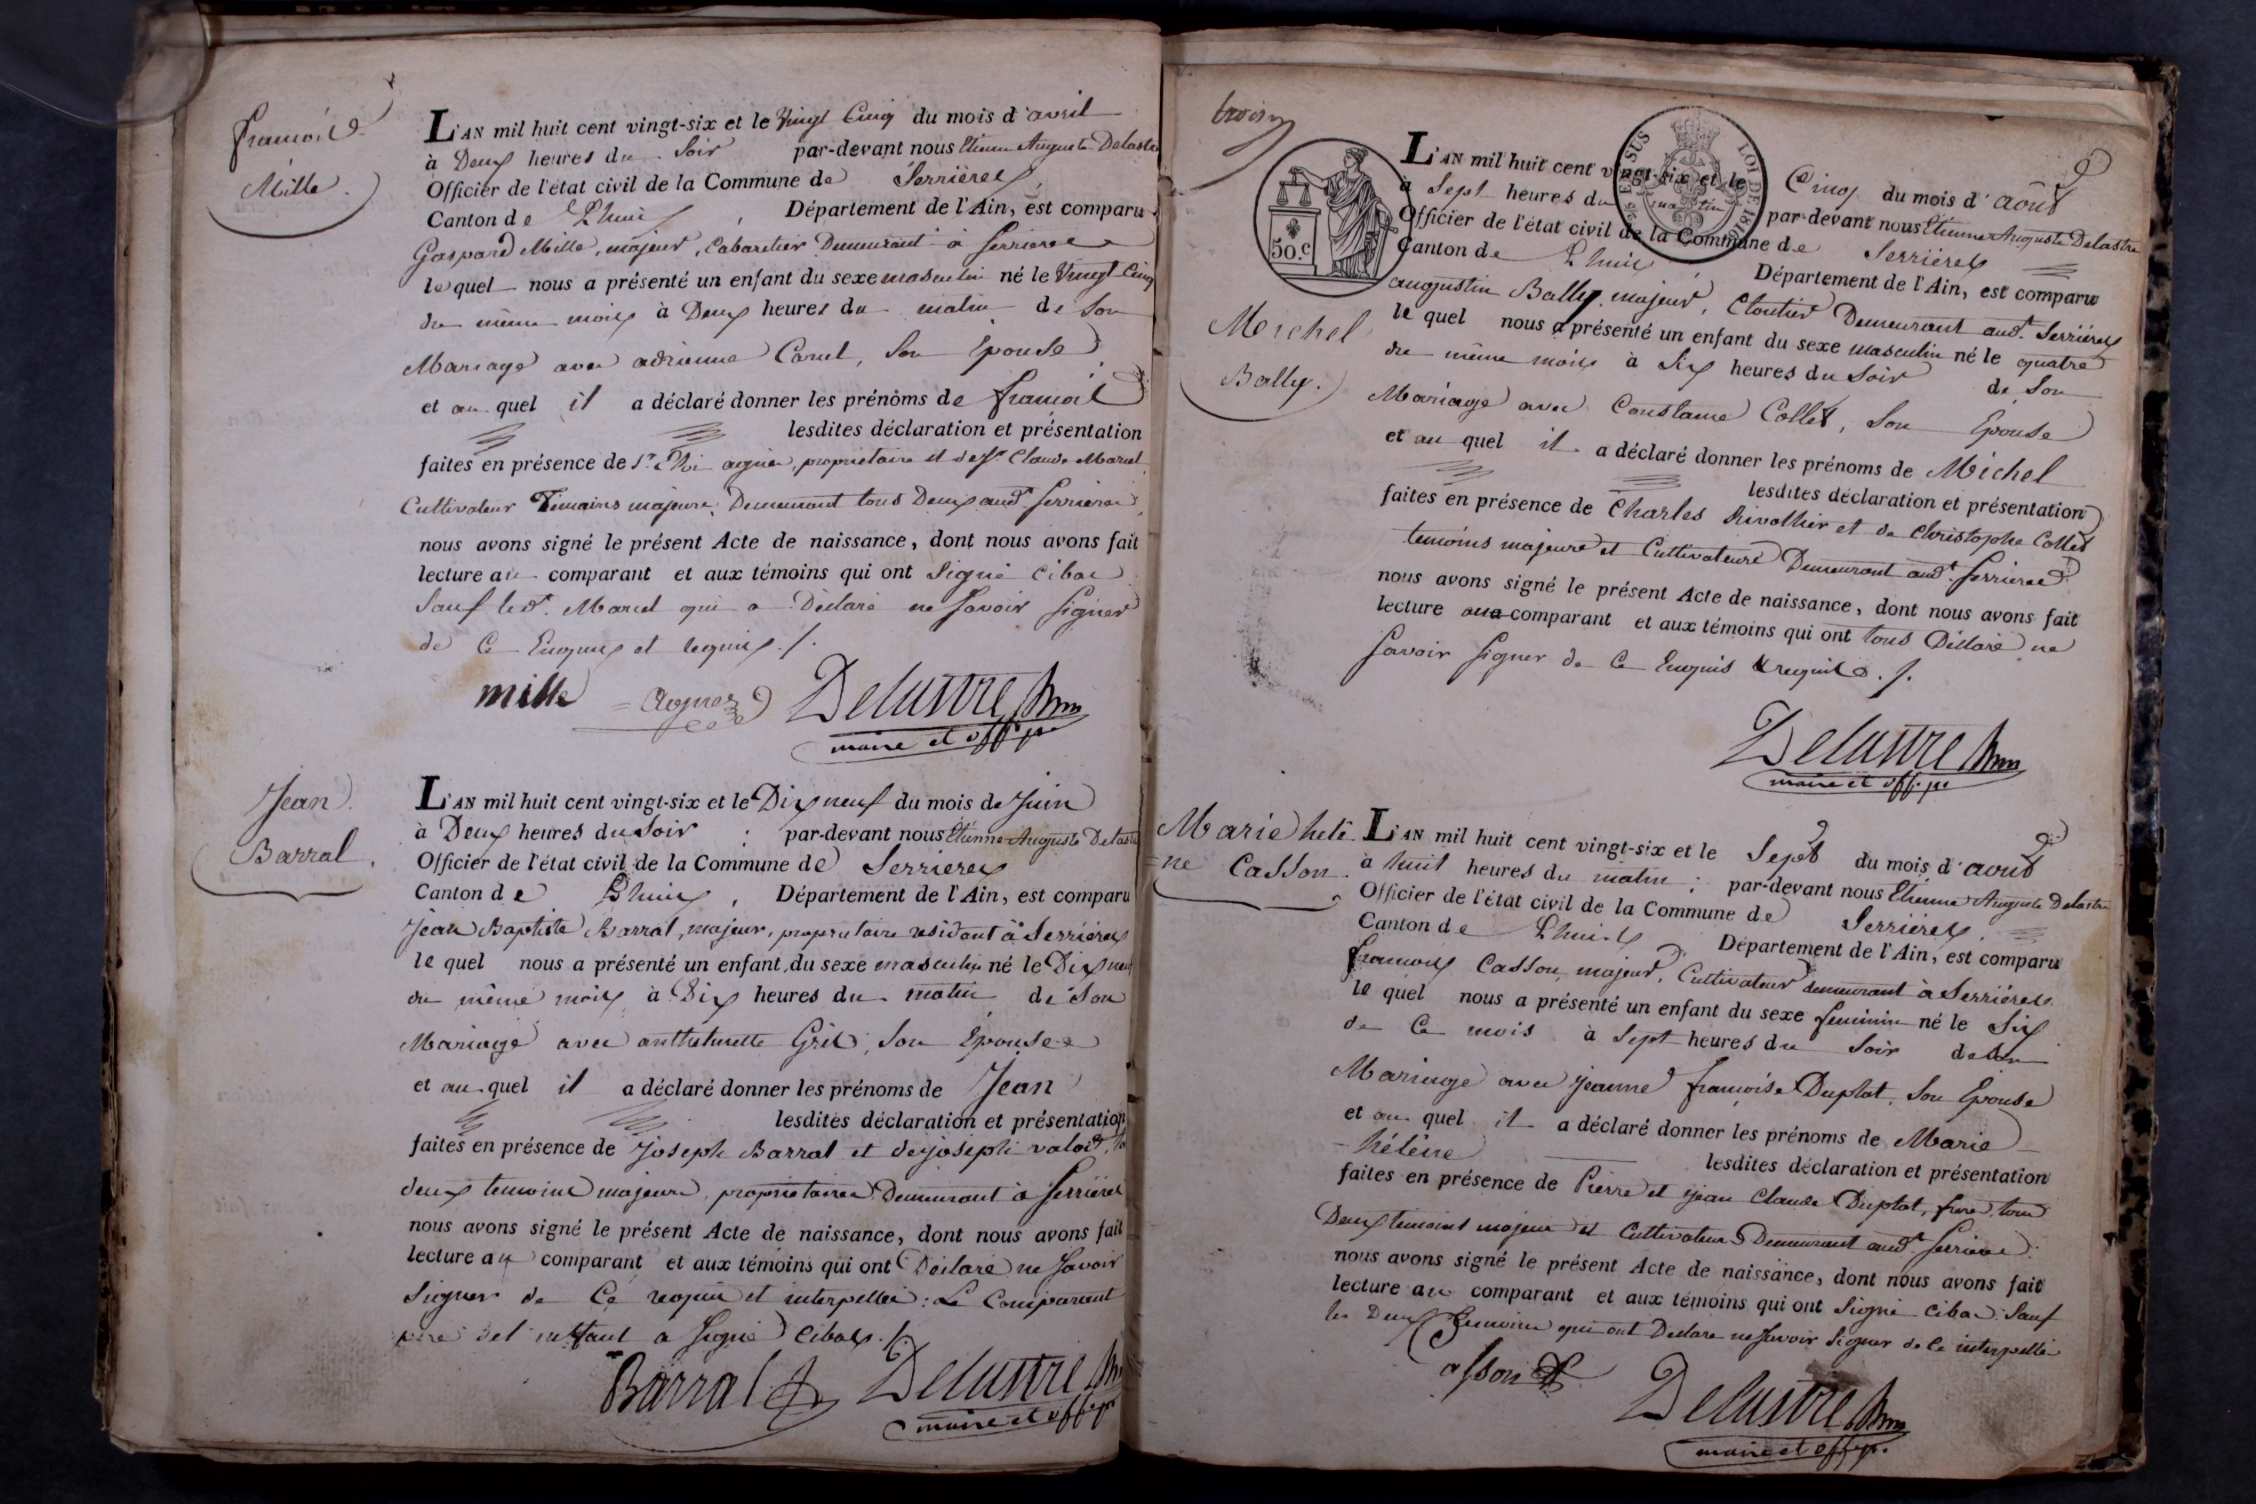 françois
Mille.
L'AN mil huit cent vingt-six et le Vingt Cinq du mois d'avril
à Deux heures du Soir par-devant nous Etienne Auguste Delastre
Officier de l'état civil de la Commune de Serrières
Canton de Lhuis, Département de l'Ain, est comparu
Gaspard Mille, majeur, Cabaretier Demeurant à Serrieres
le quel nous a présenté un enfant du sexe masculin né le Vingt Cinq
du même mois à Deux heures du matin de Son
Mariage avec adrienne Son Epouse
et au quel il a déclaré donner les prénoms de françois
lesdites déclaration et présentation
faites en présence de Sr. propriétaire et de Sr Claude Marcel
Cultivateur Témoins majeurs, Demeurant tous Deux audt. Serrieres
nous avons signé le présent Acte de naissance, dont nous avons fait
lecture au comparant et aux témoins qui ont Signé cibas
Sauf ledt. Marcel qui a Déclaré ne Savoir Signer
de Ce Enquis et requis ./.
mille Delastre
maire et off. p.
Jean
Barral.
L'AN mil huit cent vingt-six et le Dix neuf du mois de Juin
à Deux heures du Soir ; par-devant nous Etienne Auguste Delastre
Officier de l'état civil de la Commune de Serrieres
Canton de Lhuis, Département de l'Ain, est comparu
Jean Baptiste Barral, majeur, proprietaire residant à Serriéres
le quel nous a présenté un enfant du sexe masculin né le Dix neuf
du même mois à Dix heures du matin de Son
Mariage avec Son Epouse
et au quel il a déclaré donner les prénoms de Jean
lesdites déclaration et présentation
faites en présence de Joseph Barral et de joseph
deux temoins majeurs, proprietaires Demeurant à Serrieres
nous avons signé le présent Acte de naissance, dont nous avons fait
lecture au comparant et aux témoins qui ont Déclaré ne Savoir
Signer de Ce requis et interpellés : Le Comparant
a Signé Cibas ./.
Barral Delastre
maire et off. p.
50.c
LOI DE 1816
L'AN mil huit cent vingt-six et le Cinq du mois d'août
à Sept heures du matin par-devant nous Etienne Auguste Delastre
Officier de l'état civil de la Commune de Serriéres
Canton de Lhuis, Département de l'Ain, est comparu
augustin Bally, majeur, Cloutier Demeurant audt. Serriéres
Michel
Bally.
le quel nous a présenté un enfant du sexe masculin né le quatre
du même mois à Six heures du Soir de Son
Mariage avec Constance Collet, Son Epouse
et au quel il a déclaré donner les prénoms de Michel
lesdites déclaration et présentation
faites en présence de Charles Rivollier et de Christophe Collet
temoins majeurs et Cultivateurs Demeurant audt. Serrieres
nous avons signé le présent Acte de naissance, dont nous avons fait
lecture au comparant et aux témoins qui ont tous Déclaré ne
Savoir Signer de Ce Enquis et requis ./.
Delastre
maire et off. p.
Marie hélè-
ne Casson.
L'AN mil huit cent vingt-six et le Sept du mois d'août
à huit heures du matin ; par-devant nous Etienne Auguste Delastre
Officier de l'état civil de la Commune de Serriéres
Canton de Lhuis Département de l'Ain, est comparu
françois Casson, majeur, Cultivateur demeurant à Serriéres
le quel nous a présenté un enfant du sexe feminin né le Six
de Ce mois à Sept heures du Soir de Son
Mariage avec jeanne françoise Duplat, Son Epouse
et au quel il a déclaré donner les prénoms de Marie
hélène lesdites déclaration et présentation
faites en présence de Pierre et jean Claude Duplat, frere tous
Deux temoins majeurs et Cultivateurs Demeurant audt. Serrieres
nous avons signé le présent Acte de naissance, dont nous avons fait
lecture au comparant et aux témoins qui ont Signé cibas Sauf
les Deux temoins qui ont Declaré ne Savoir Signer de Ce interpellés
Casson Delastre
maire et off. p.